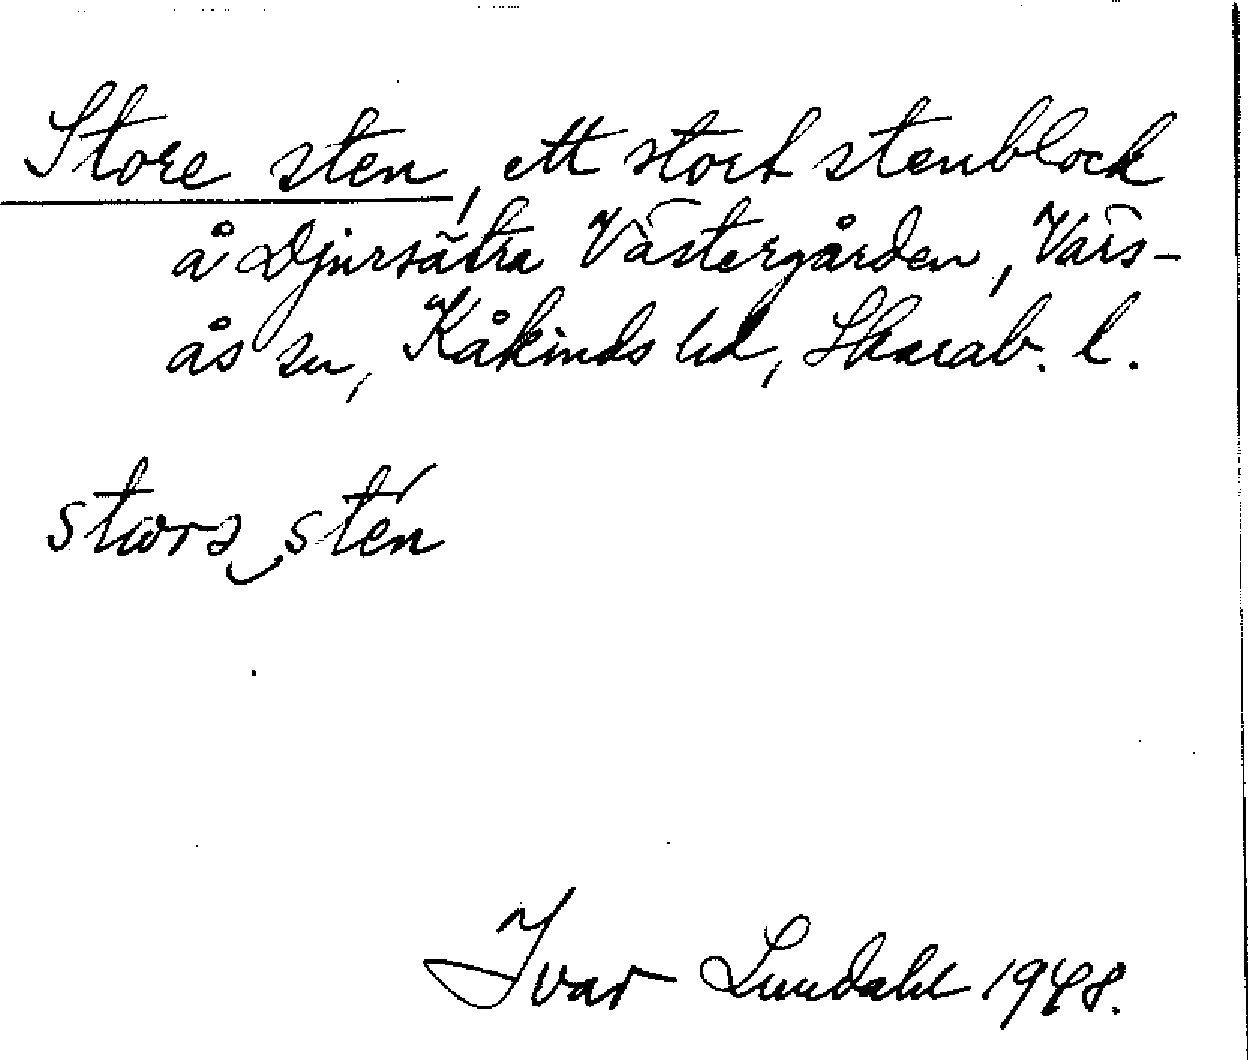 Store sten, ett stort stenblock
å Djursätra Västergården, Värs-
ås sn, Kåkinds hd, Skarab. l.
stωrə stén
Ivar Lundahl 1948.